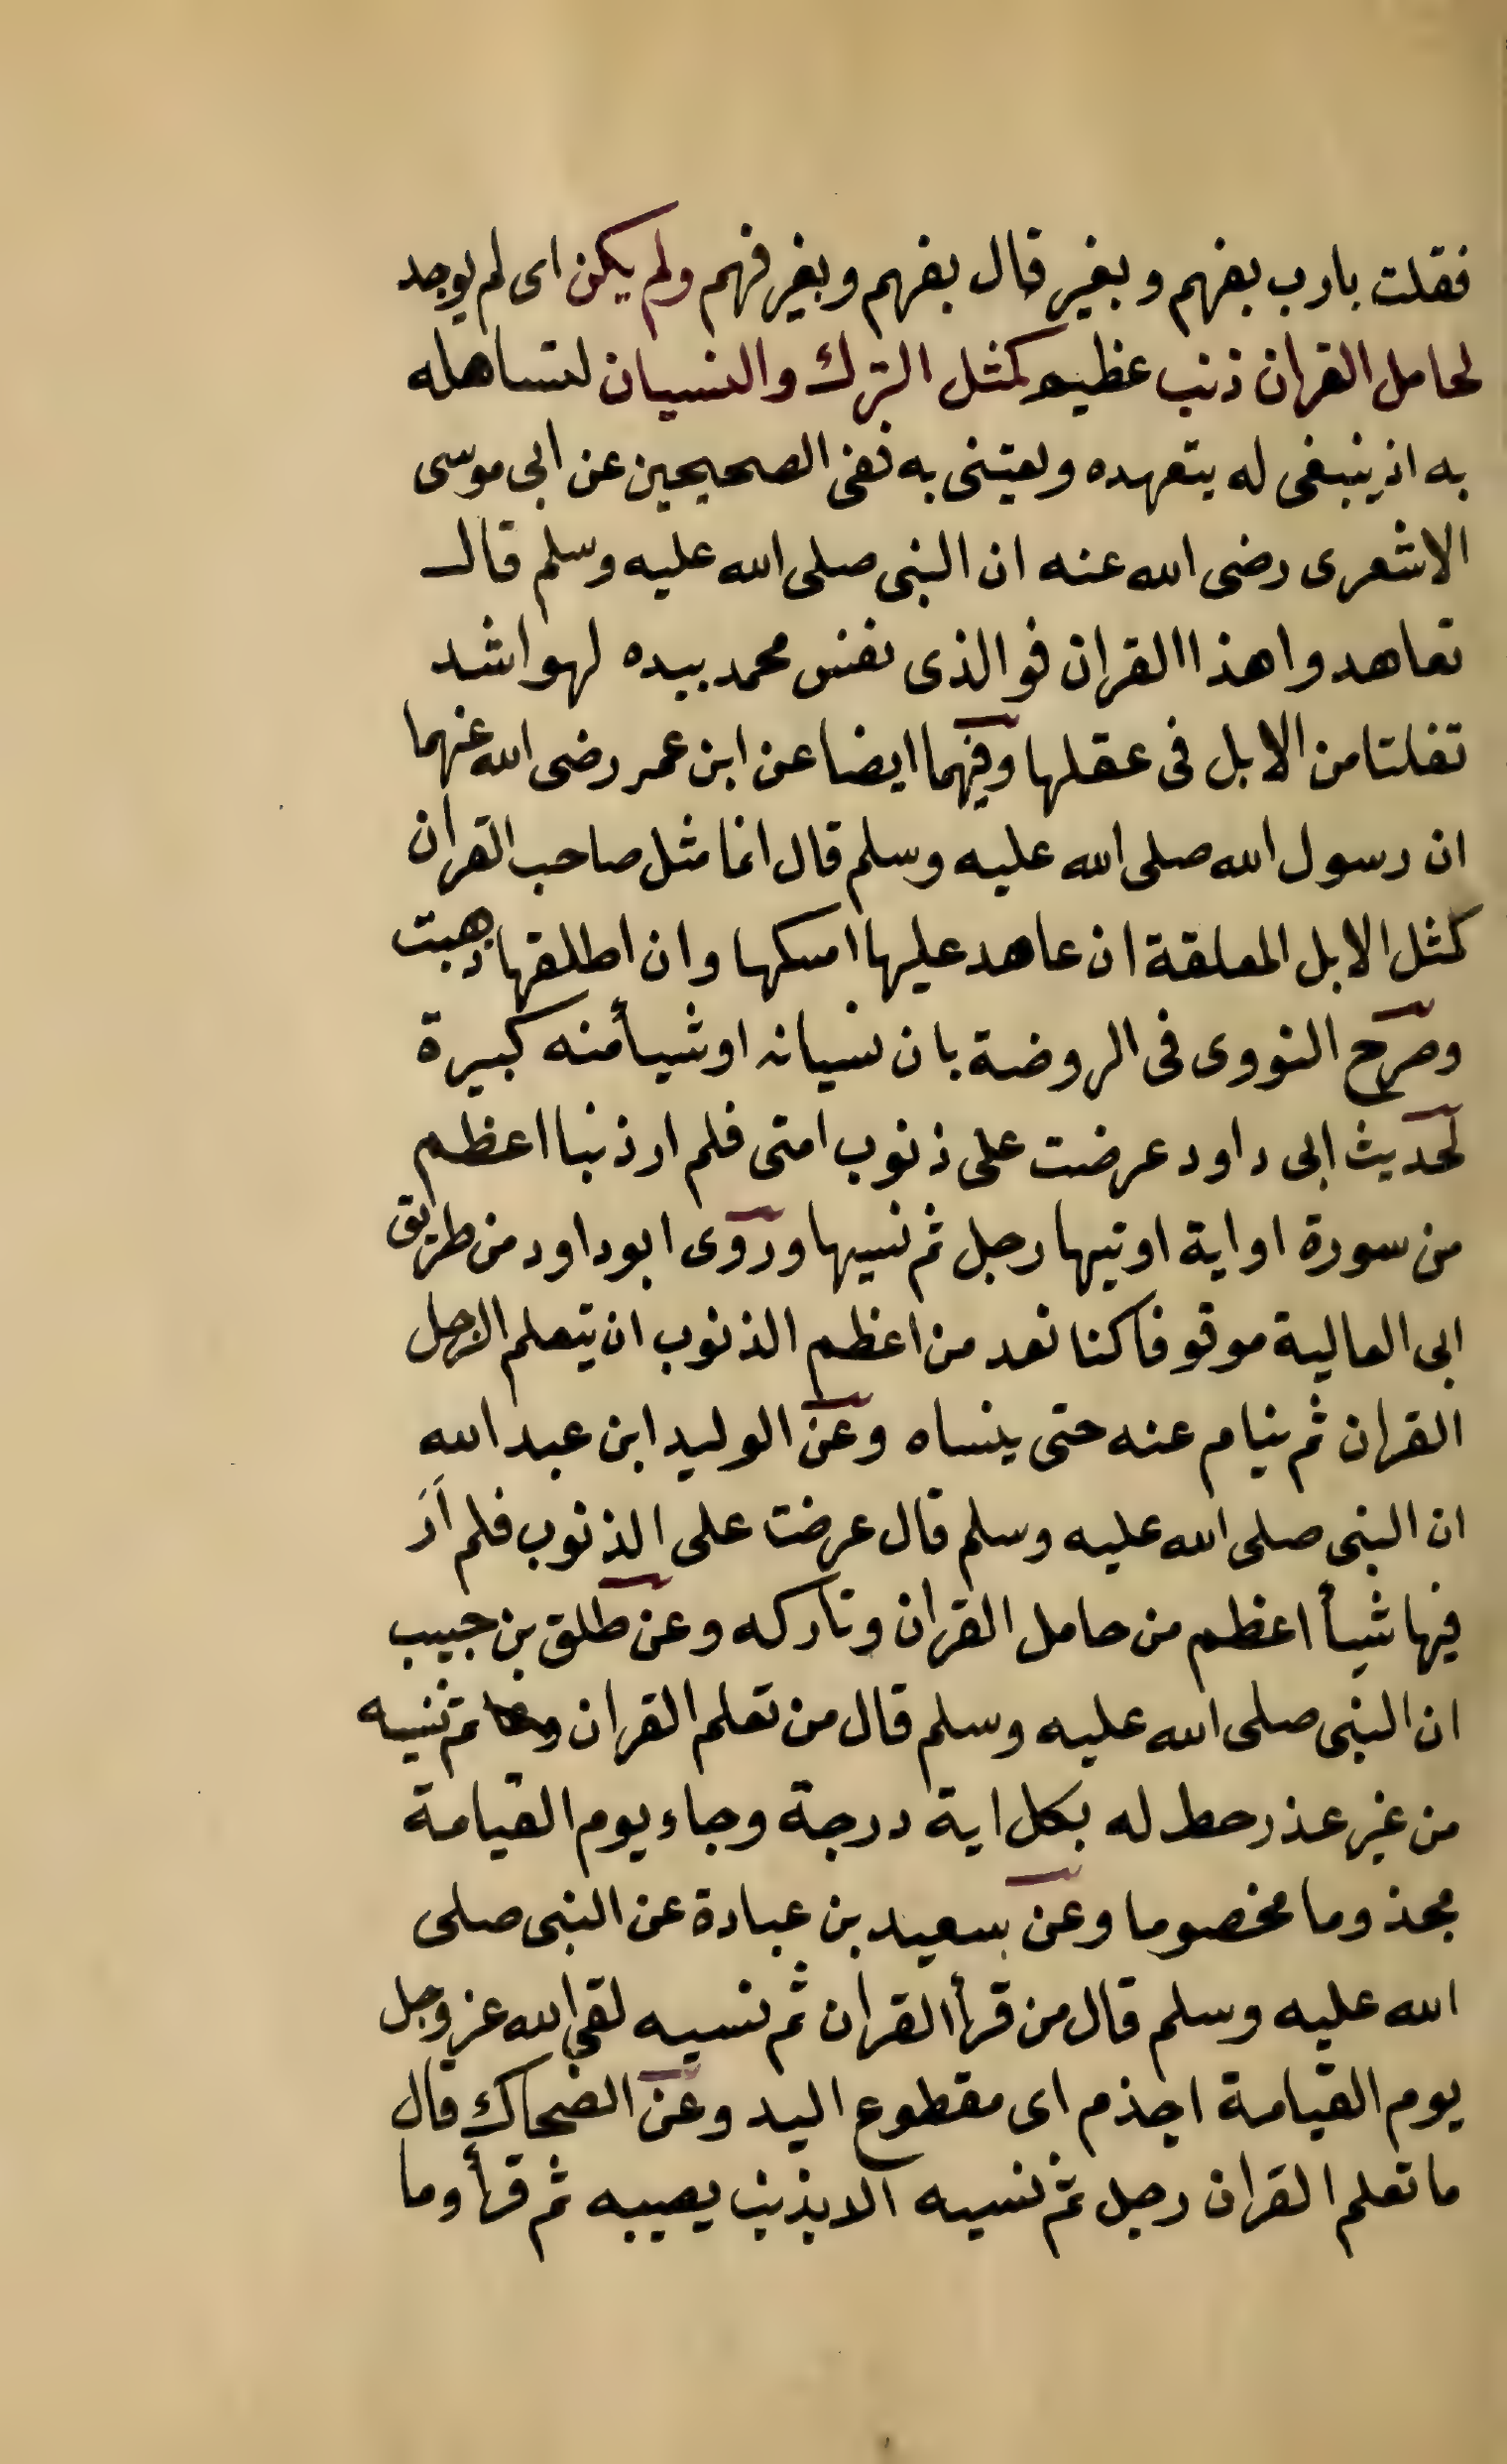 فقلت يارب بفهم وبغير قال بفهم وبغير فهم ولم يكن اى لم يوجد
لحامل القران ذنب عظيم كمثل الترك والنسيان لتساهله
به اذ ينبغى له يتعهده ويعتنى به ففى الصحيحين عن ابى موسى
الاشعرى رضى الله عنه ان النبى صلى الله عليه وسلم قال
تعاهدوا هذا القران فوالذى نفس محمد بيده لهو اشد
تفلتا من الابل فى عقلها وفيهما ايضا عن ابن عمر رضى الله عنهما
ان رسول الله صلى الله عليه وسلم قال انما مثل صاحب القران
كمثل الابل المعلقة ان عاهد عليها امسكها وان اطلقها ذهبت
وصرح النووى فى الروضة بان نسيانه او شيأ منه كبيرة
لحديث ابى داود عرضت على ذنوب امتى فلم ار ذنبا اعظم
من سورة او اية اوتيها رجل ثم نسيها وروى ابو داود من طريق
ابى العالية موقوفا كنا نعد من اعظم الذنوب ان يتعلم الرجل
القران ثم ينام عنه حتى ينساه وعن الوليد ابن عبد الله
ان النبى صلى الله عليه وسلم قال عرضت على الذنوب فلم أَرَ
فيها شيأ اعظم من حامل القران وتاركه وعن طلق بن حبيب
ان النبى صلى الله عليه وسلم قال من تعلم القران ثم نسيه
من غير عذر حط له بكل اية درجة وجاء يوم القيامة
مجذوما مخصوما وعن سعيد بن عبادة عن النبى صلى
الله عليه وسلم قال من قرأ القران ثم نسيه لقى الله عز وجل
يوم القيامة اجذم اى مقطوع اليد وعن الضحاك قال
ما تعلم القران رجل ثم نسيه الا بذنب يصيبه ثم قرأ وما